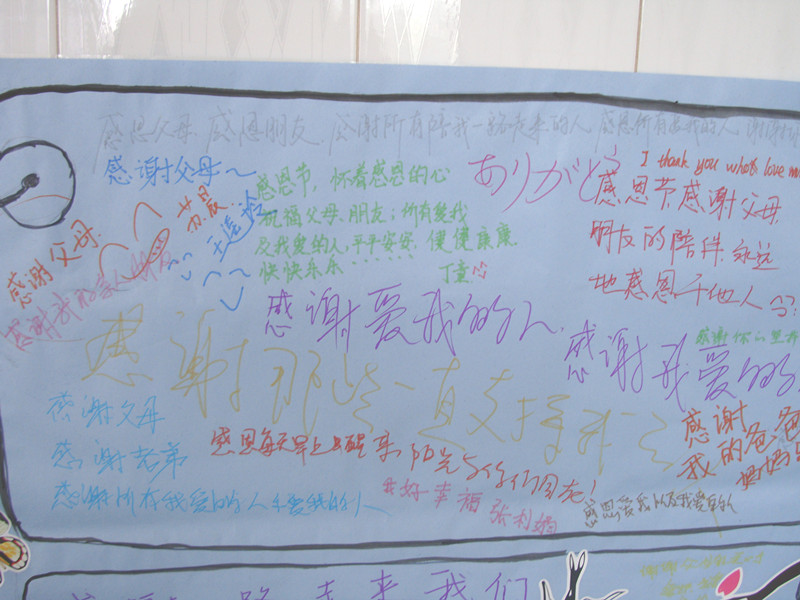 感恩父母 感恩朋友 感谢所有陪我一路走来的人 感恩所有爱我的人 谢谢
感谢父母～
感恩节，怀着感恩的心
祝福父母、朋友；所有爱我
及我爱的人，平平安安，健健康康，
快快乐乐……
丁童
ありがとう
I thank you who's love me
感恩节感谢父母
朋友的陪伴 永远
地感恩于他人
感谢父母
感谢我的家人朋友
感谢爱我的人
感谢你们
感谢我爱的
感谢那些一直支持我
感谢父母
感谢老弟
感谢所有我爱的人和爱我的人
感恩每天早上醒来 阳光与你们同在！
我好幸福 张利娟
感谢
我的爸爸
妈妈
感恩爱我以及我爱的人
路 走来 我们